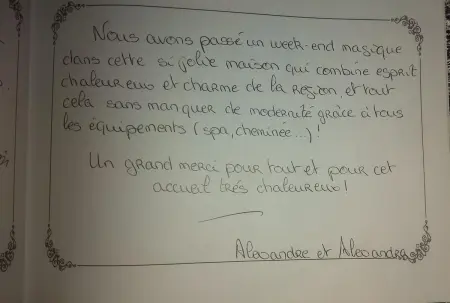 Nous avons passé un week-end magique
dans cette si jolie maison qui combine esprit
chaleureux et charme de la Region, et tout
cela sans manquer de modernité grâce à tous
les équipements (spa, cheminée...)!
Un grand merci pour tout et pour cet
accueil très chaleureux!
Alexandre et Alexandra